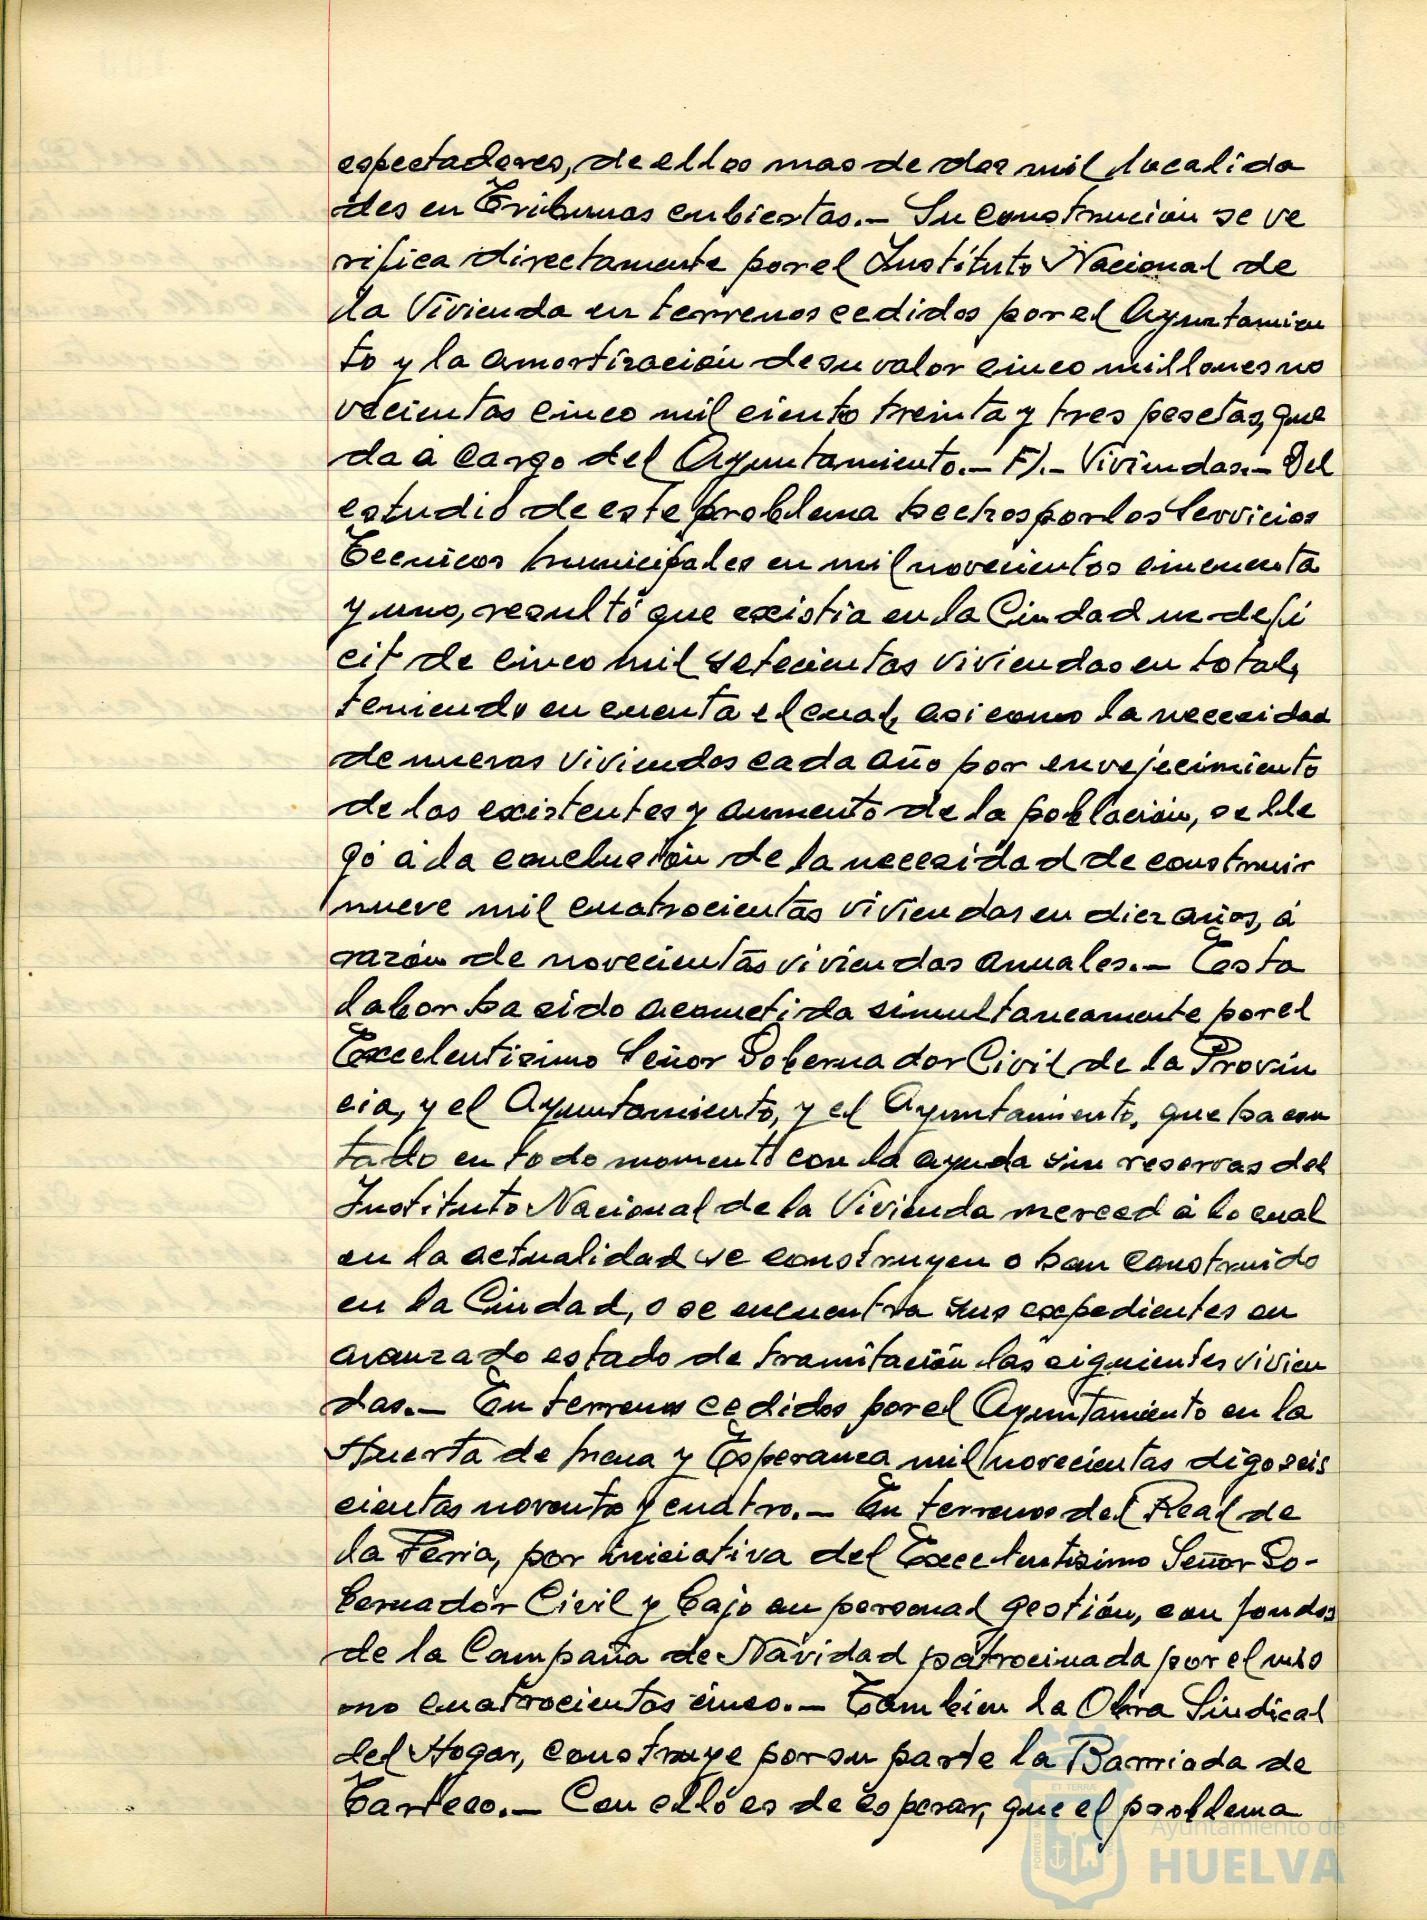 espectadores, de ellos mas de dos mil localida
des en Tribunas cubiertas.— Su construcion se ve
rifica directamente por el Instituto Nacional de
la Vivienda en terrenos cedidos por el Ayuntamien
to y la amortización de su valor cinco millones no
vecientas cinco mil ciento treinta y tres pesetas, que
da á cargo del Ayuntamiento.— F).— Viviendas.— Del
estudio de este problema hechos por los Servicios
Tecnicos municipales en mil novecientos cincuenta
y uno, resultó que existia en la Ciudad un defi
cit de cinco mil setecientas viviendas en total,
teniendo en cuenta el cual, asi como la necesidad
de nuevas viviendas cada año por envejecimiento
de las existentes y aumento de la población, se lle
gó á la conclusión de la necesidad de construir
nueve mil cuatrocientas viviendas en diez años, á
razón de novecientas viviendas anuales.— Esta
labor ha sido acometida simultaneamente por el
Excelentisimo Señor Gobernador Civil de la Provin
cia, y el Ayuntamiento, y el Ayuntamiento, que ha con
tado en todo momento con la ayuda sin reservas del
Instituto Nacional de la Vivienda merced á lo cual
en la actualidad se construyen o han construido
en la Ciudad, o se encuentra sus expedientes en
avanzado estado de tramitación las siguientes vivien
das.— En terrenos cedidos por el Ayuntamiento en la
Huerta de Mena y Esperanza mil novecientas digo seis
cientas noventa y cuatro.— En terrenos del Real de
la Feria, por iniciativa del Excelentisimo Señor Go-
bernador Civil y bajo su personal gestión, con fondos
de la Campaña de Navidad patrocinada por el mis
mo cuatrocientas cinco.— Tambien la Obra Sindical
del Hogar, construye por su parte la Barriada de
Tarteso.— Con ello es de esperar, que el problema
Ayuntamiento de
HUELVA